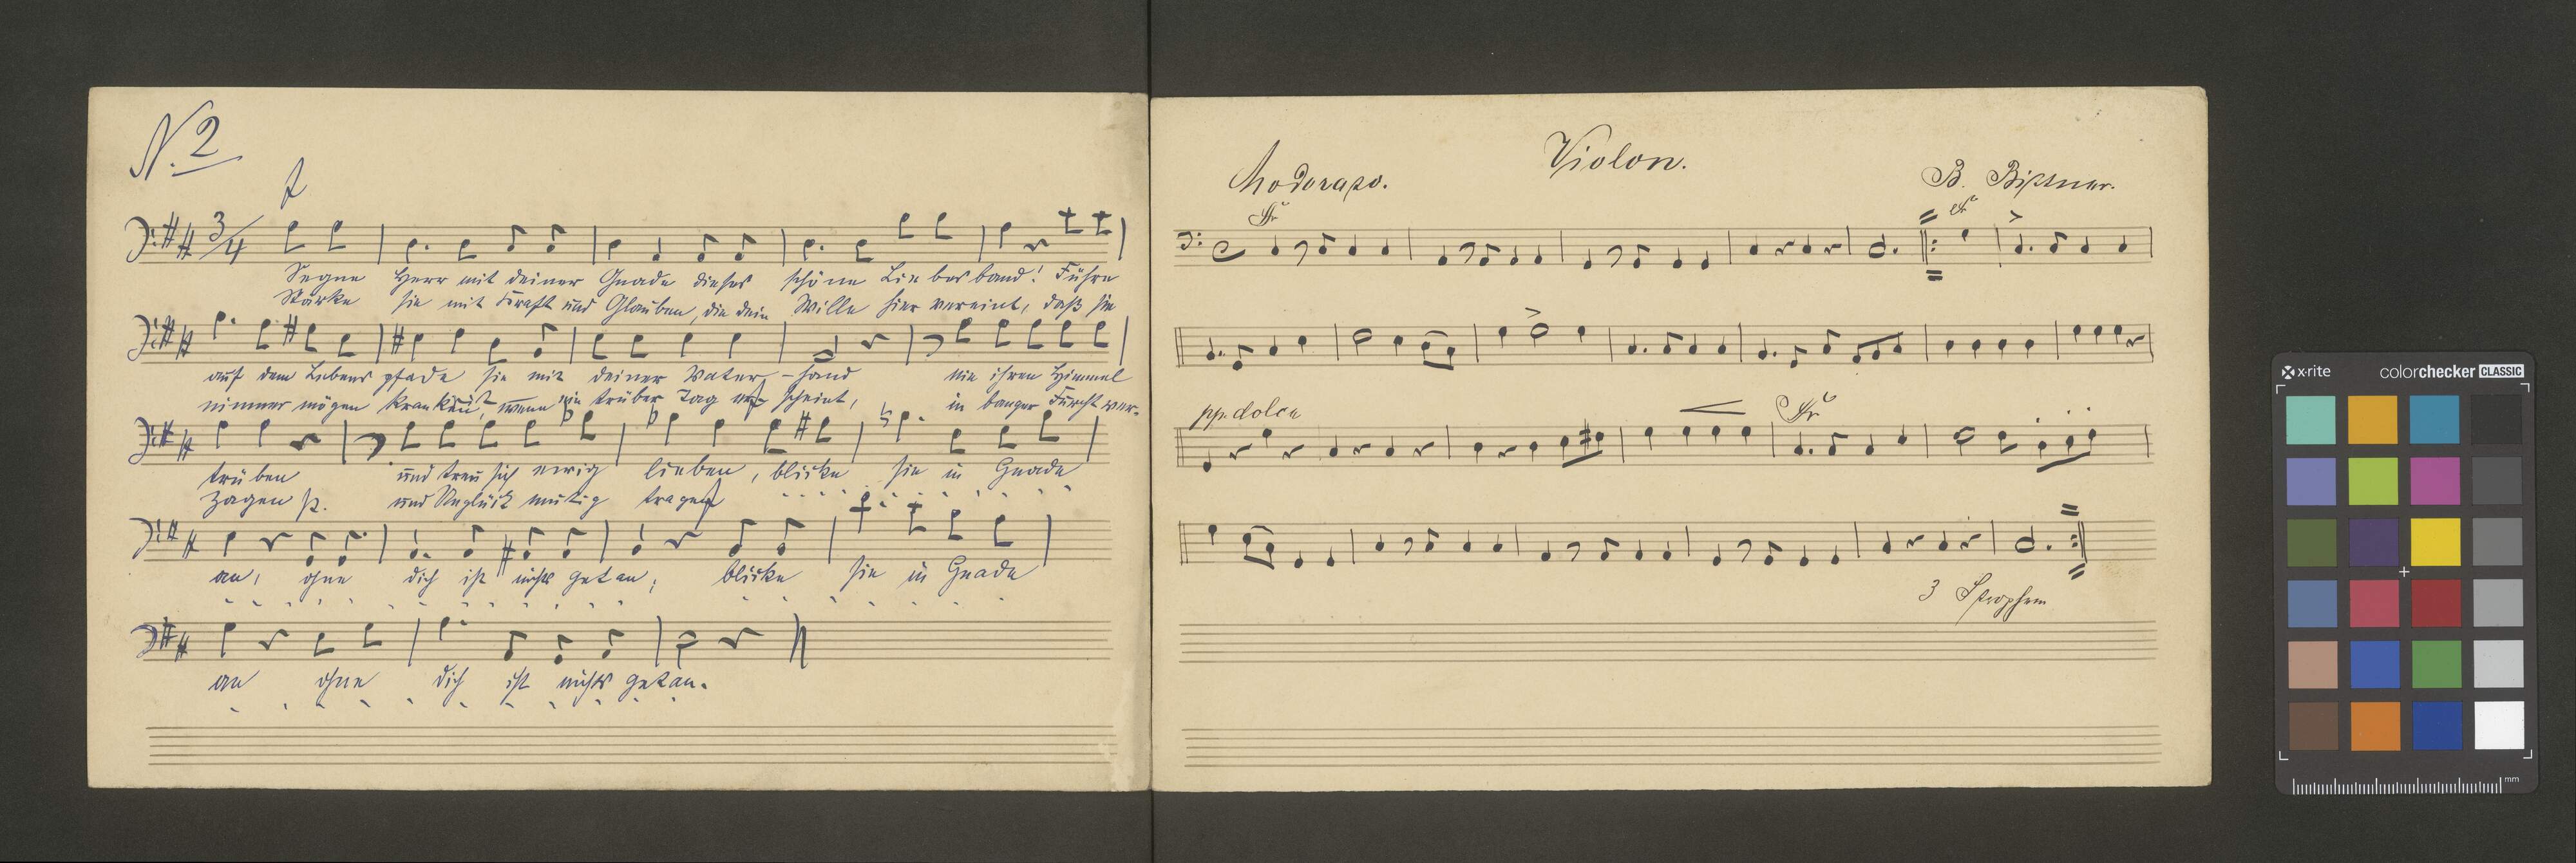 N. 2
f
3/4
Segne Herr mit deiner Gnade dieses schöne Liebesband! Führe
Stärke sie mit Kraft und Glauben, die dein Wille hier vereint, daß sie
auf dem Lebenspfade sie mit deiner Vater-hand nie ihren Himmel
nimmer mögen wenn ein trüber Tag scheint, in banger Furcht ver-
trüben und treu sich ewig lieben, blicke sie in Gnade
zagen und Unglück mutig tragen
an, ohne dich ist nichts getan; blicke sie in Gnade
an ohne dich ist nichts getan.
Violon.
Moderato.
B. Bittner.
pp. dolce
3 Strophen
x-rite colorchecker CLASSIC
mm